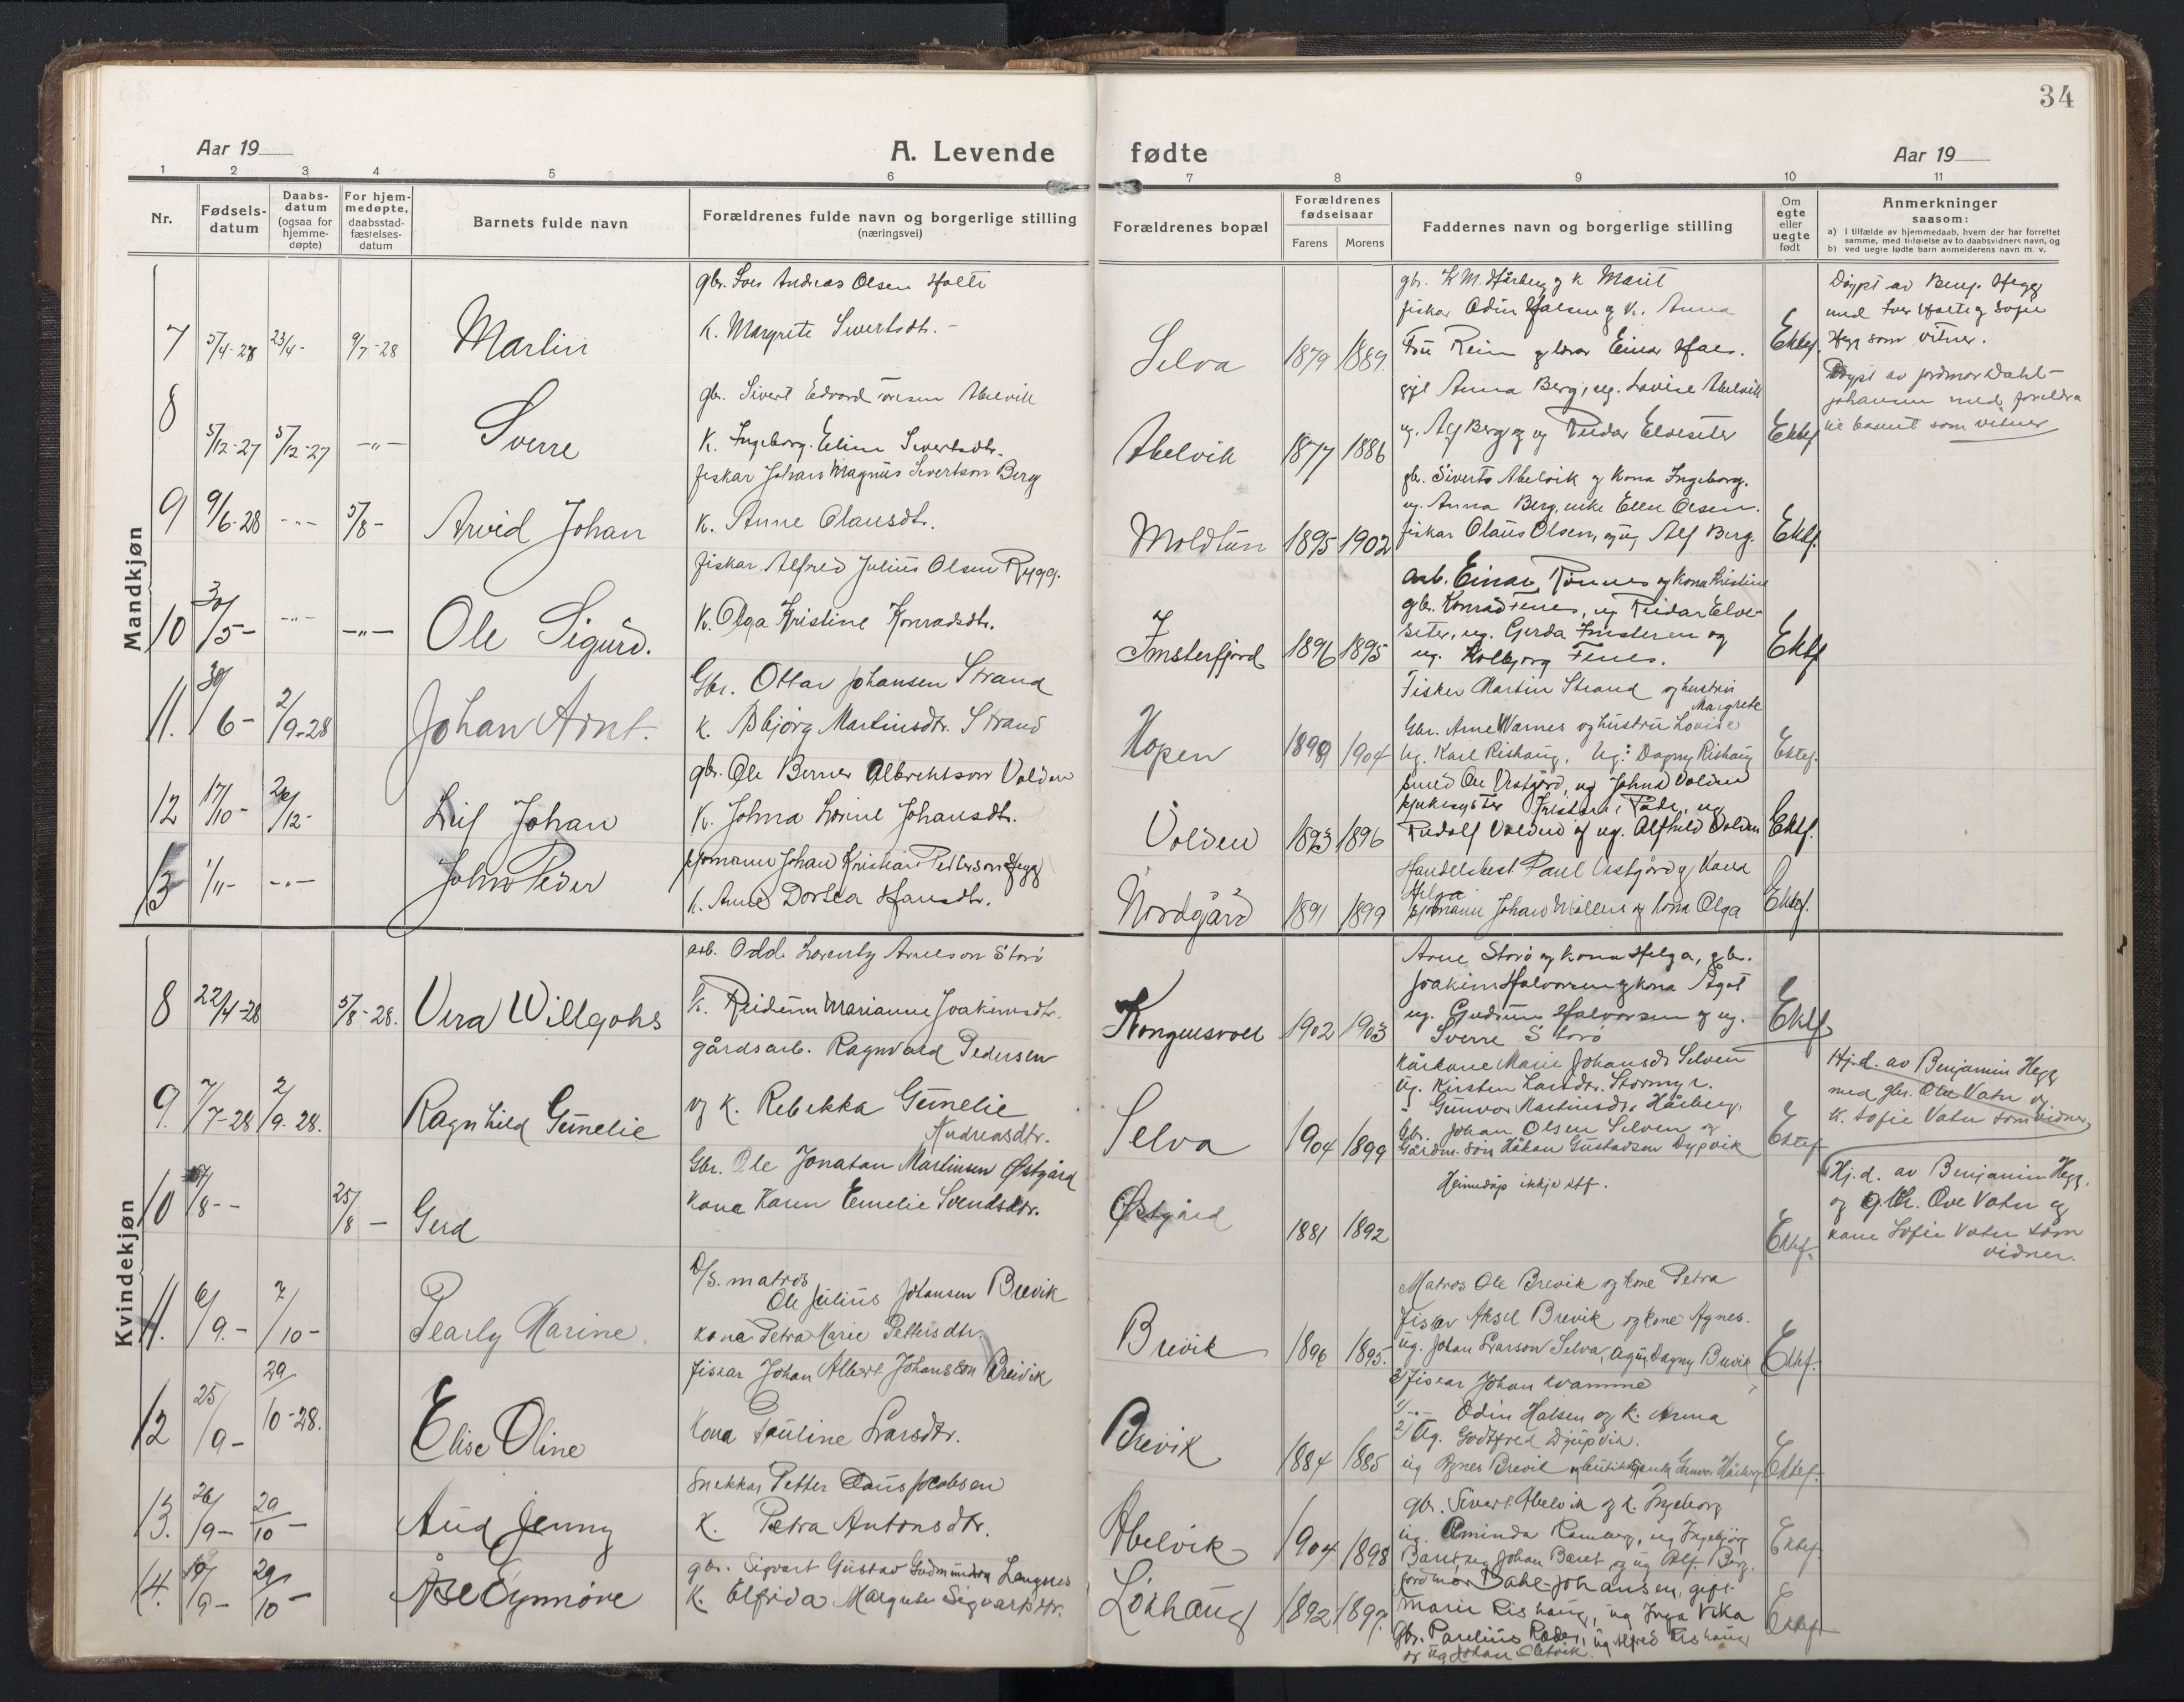 34
Aar 19
A. Levende fødte
Aar 19
1 2 3 4 5 6 7 8 9 10 11
Nr.
Fødsels-
datum
Daabs-
datum
(ogsaa for
hjemme-
døpte)
For hjem-
medøpte,
daabsstad-
fæstelses-
datum
Barnets fulde navn
Forældrenes fulde navn og borgerlige stilling
(næringsvei)
Forældrenes bopæl
Forældrenes
fødselsaar
Farens Morens
Faddernes navn og borgerlige stilling
Om
egte
eller
uegte
født
Anmerkninger
saasom:
a) i tilfælde av hjemmedaab, hvem der har forrettet
samme, med tilføielse av to daabsvidners navn, og
b) ved uegte fødte barn anmelderens navn m. v.
Mandkjøn
7 5/4-28 23/4- 9/7-28 Marlin
gbr. Iver Andreas Olsen Holte
K. Margrete Sivertsdt. -
Selva 1879 1889.
gbr. K M. Hårberg og k Marit
fiskar Odin Halsen og K. Anna
Fru Rein og lærar Einar Hals.
Ektef.
Døypt av Benj. Hegg
med Iver Holte og Sofie
Hegg som vitner.
8 5/12-27 5/12-27 -"- Sverre
gbr. Sivert Edvard Iversen Abelvik
K. Ingeborg Eline Sivertsdtr.
Abelvik 1877 1886
gjf Anna Berg, ug. Lovise Abelvik
ug. Alf Berg og ug Reidar Elveseter
Ektef
Døypt av jordmor Dahl-
Johansen med foreldra
til barnet som vitner
9 9/6-28 -"- 5/8- Arvid Johan
fiskar Johan Magnus Sivertson Berg
K. Anne Olausdt.
Moldtun 1895 1902
gbr. Siverts Abelvik og Kona Ingeborg.
ug. Anna Berg, enke Ellen Olsen.
fiskar Olaus Olsen, og ug Alf Berg.
Ektf.
10 30/5- -"- -"- Ole Sigurd.
fiskar Alfred Julius Olsen Rygg.
K. Olga Kristine Konradsdtr.
Imsterfjord 1896 1895
arb. Einar Rønnes og Kona Kristine
gbr. Konrad Fenes, ug Reidar Elve-
seter, ug. Gerda Imsteren og
ug. Kolbjørg Fenes.
Ektf
11. 30/6- 2/9-28 Johan Arnt.
Gbr. Ottar Johansen Strand
K. Asbjørg Martinsdtr. Strand
Hopen 1899 1904
Fisker Martin Strand og hustru
Margrete
Gbr. Arne Warnes og hustru Lovise
Ug. Karl Rishaug, Ug: Dagny Rishaug
Ektef.
12 17/10- 26/12- Leif Johan
gbr. Ole Berner Albrektson Volden
K. Johna Lovine Johansdt.
Volden 1893 1896
smed Ole Vestgjerd, ug Johna Volden
sjukesyster Kristine, ug
Rudolf Volden og ug. Alfhild Volden
Ektf.
13 1/11- -"- John Peder
sjømann Johan Kristian Petterson Hegg
K. Anne Dortea Hansdtr.
Nordgård 1891 1899
Handelsbest. Paul Vestgjerd og Kona
Helga
sjømann Johan Møllen og Kona Olga
Ektef.
Kvindekjøn
8 22/4-28 5/8-28. Vera Willgohs
arb. Odd Lorenty Arneson Storø
K. Reidunn Marianne Joakimsdtr.
Kongensvoll 1902 1903
Arne Storø og kona Helga, gbr.
Joakim Halvorsen og kona Ågot
ug. Gudrun Halvorsen og ug.
Sverre Storø
Ektf
9. 7/7-28 2/9-28. Ragnhild Gunelie
gårdsarb. Ragnvald Pedersen
og K. Rebekka Gunelie
Andreasdtr.
Selva 1904 1899
Kårkone Marie Johansdr Selven
Ug. Kirsten Larsdtr. Stormyr.
" Gunvor Martinsdr Hårberg.
Gbr. Johan Olsen Selven og
Gårdm. søn Håkon Gustavsen Dypvik
Ektef
Hj.d. av Benjamin Hegg
med gbr. Ove Vatn og
K. Sofie Vatn som vidner
10 17/8-- 25/8- Gerd
Gbr. Ole Jonatan Martinsen Østgård
Kona Karen Emelie Svendsdtr.
Østgård 1881 1892
Heimedåp ikkje stf.
Ektef.
Hj.d. av Benjamin Hegg.
og gbr. Ove Vatn og
kone Sofie Vatn som
vidner.
11. 6/9.- 7/10- Pearly Karine.
D/S. matros
Ole Julius Johansen Brevik
Kona Petra Marie Pettersdtr.
Brevik 1896 1895.
Matros Ole Brevik og kone Petra
Fisker Aksel Brevik og kone Agnes.
Ug. Johan Larson Selva, og ug Dagny Brevik
Ektef.
12 25/9- 29/10-28. Elise Oline
fiskar Johan Albert Johansson Breivik
Kona Pauline Larsdtr.
Brevik 1884 1885
3/ fiskar Johan Kvamme
1/ -"- Odin Halsen og K. Anna
2/ Ug. Godtfred Djupvik.
ug Agnes Brevik og Gunvor Hårberg
Ektef.
13. 26/9- 29/10- Aud Jenny
Snekkar Petter Olaus Jacobsen
K. Petra Antonsdtr.
Abelvik 1904 1898
gbr. Sivert Abelvik og K. Ingeborg
ug. Aminda Ramberg, ug Ingebjørg
Baret, ug Johan Baret og ug Alf Berg.
Ektef.
14. 10/9- 29/10- Åse Synnøve
gbr. Sigvart Gustav Gudmundsen Langnes
K. Elfrida Margrete Sigvartsdtr.
Løkhaug 1892 1897.
Jordmor Dahl-Johansen, gift
Marie Rishaug, ug Inga Vika
Gbr. Paulinus Røder, ug Alfred Rishaug
og ug Johan Sletvik.
Ektef